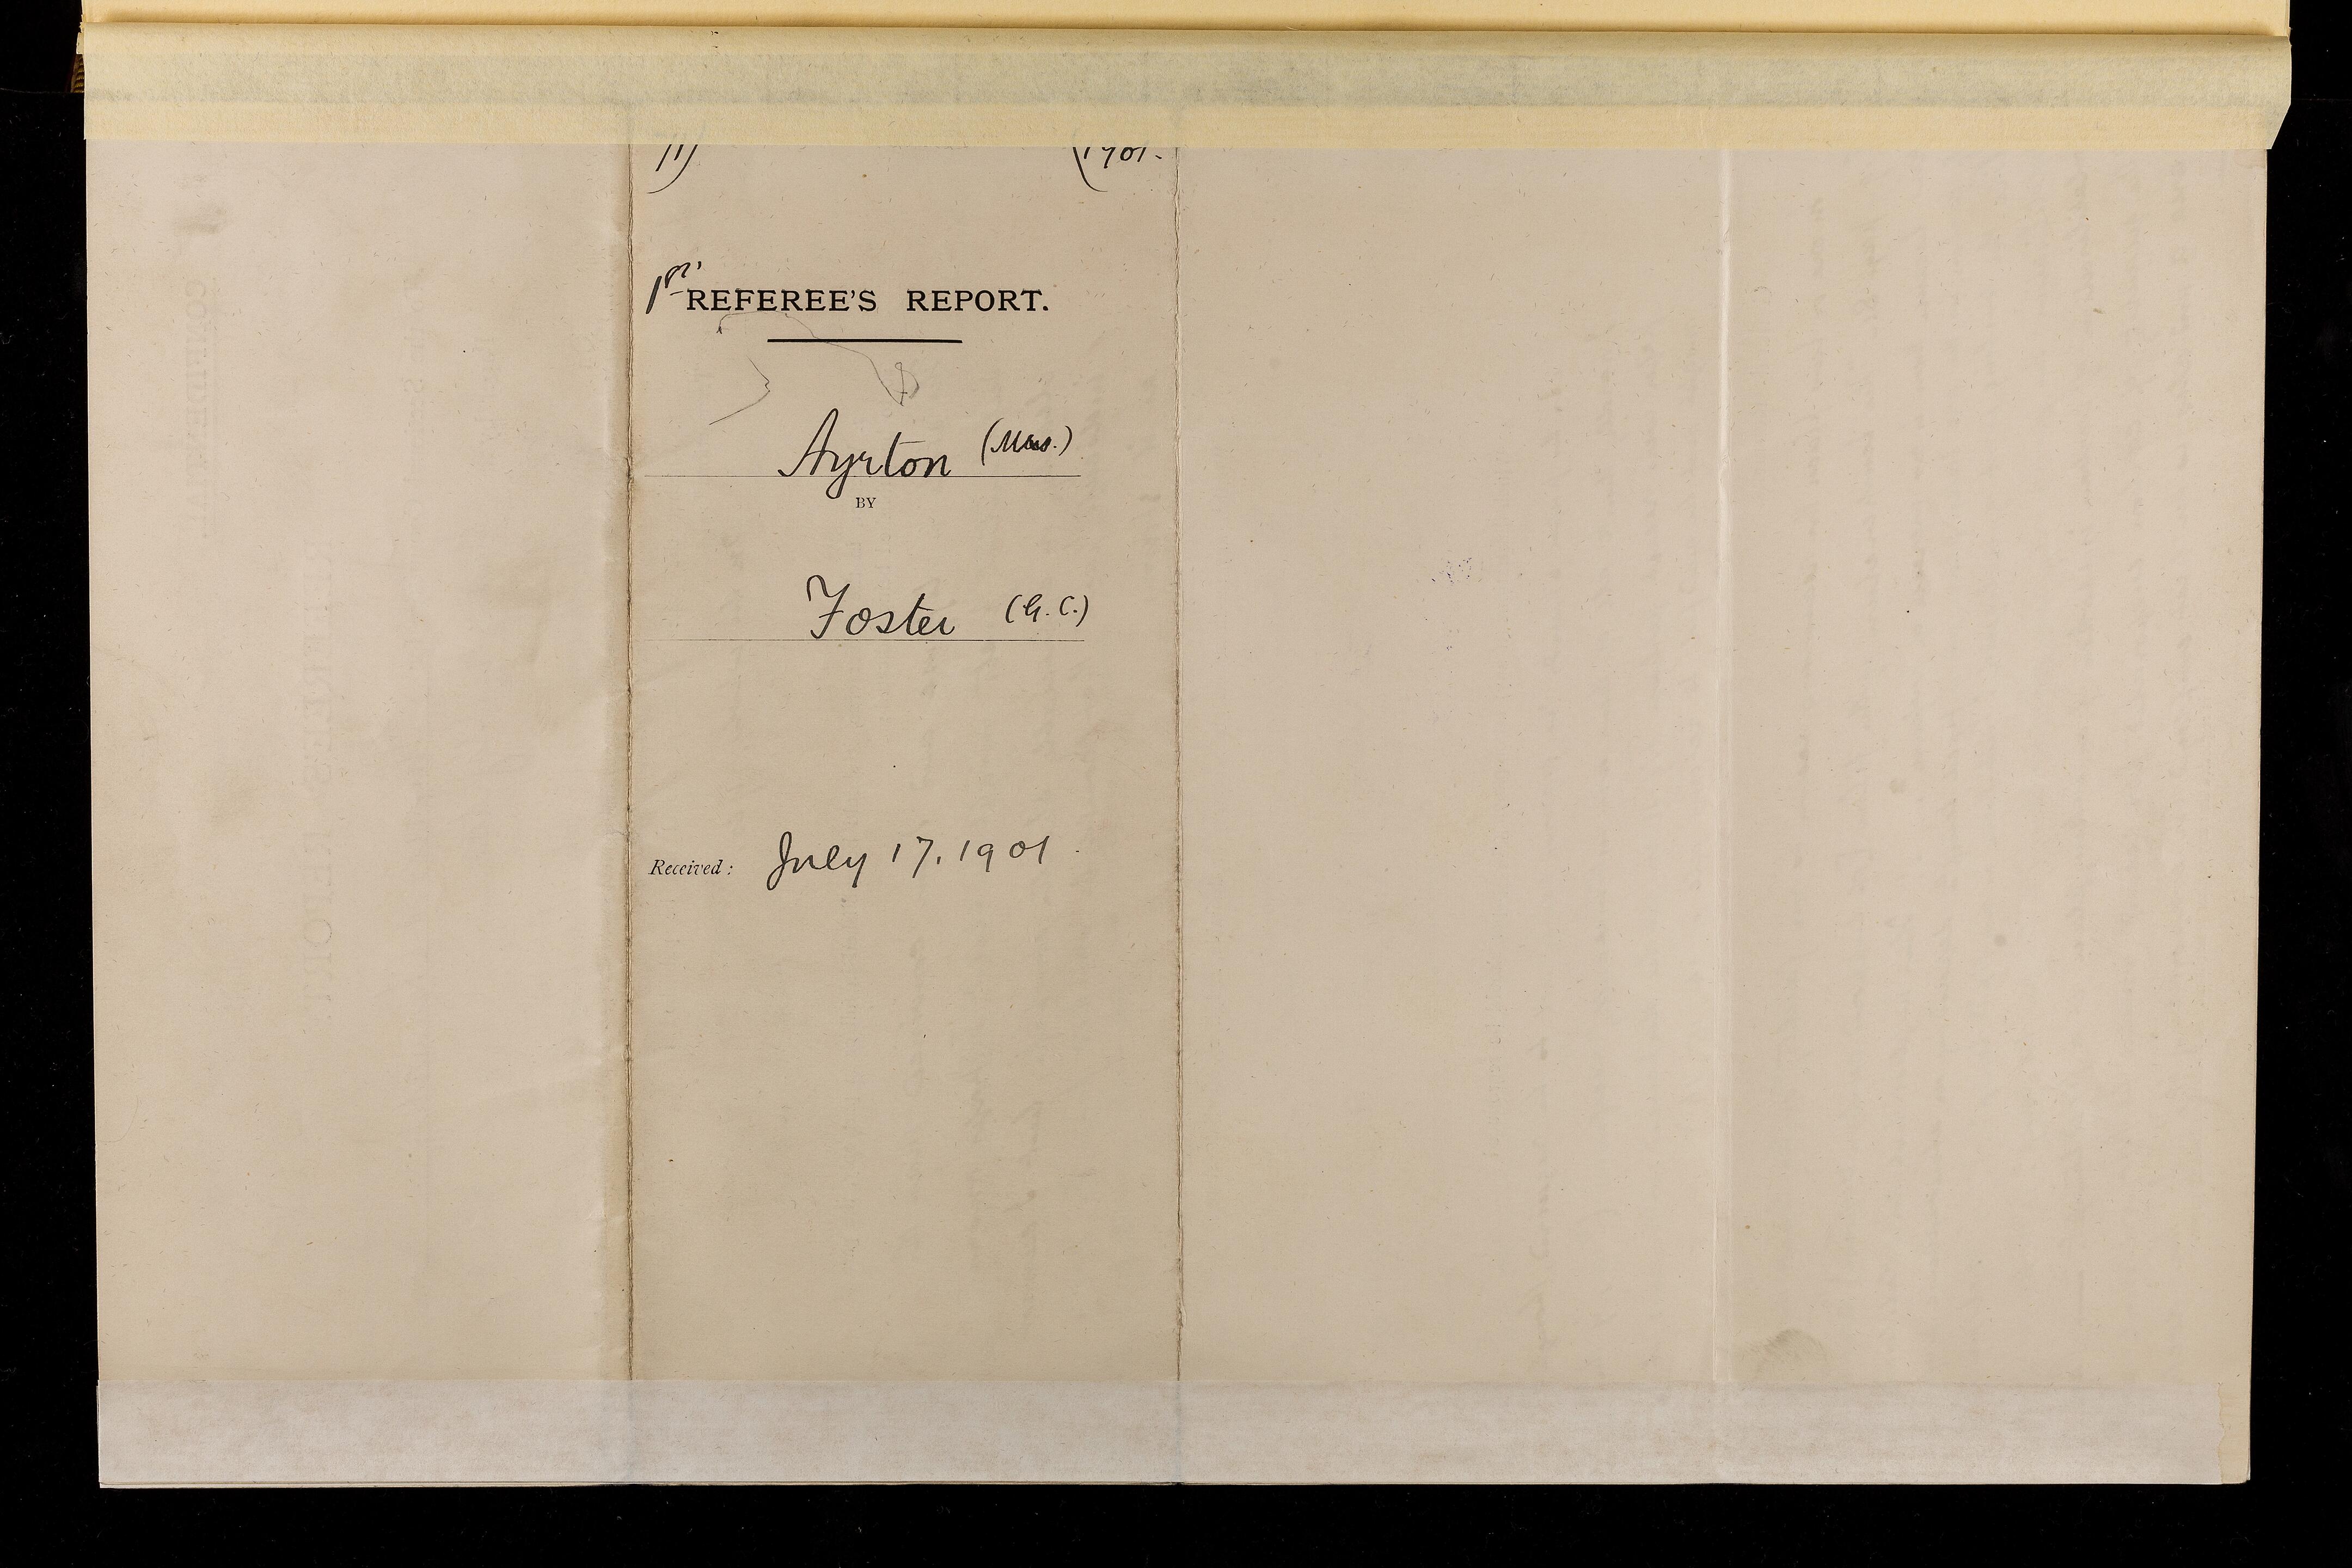 11) (1901.
1st REFEREE'S REPORT.
Ayrton (Mrs.)
BY
Foster (G. C.)
Received: July 17. 1901.